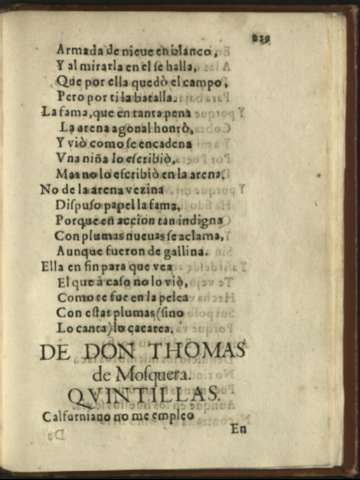 239
Armada de nieue en blanco,
Y al mirarla en el se halla,
Que por ella quedò el campo,
Pero por ti la batalla.
La fama, que en tanta pena
La arena agonal honrò,
Y viò como se encadena
Vna niña lo escribiò,
Mas no lo escribiò en la arena.
No de la arena vezina
Dispuso papel la fama,
Porque en accion tan indigna
Con plumas nueuas se aclama,
Aunque fueron de gallina.
Ella en fin para que vea
El que à caso no lo viò,
Como se fue en la pelea
Con estas plumas (sino
Lo canta) lo cacarea.
DE DON THOMAS
de Mosquera.
QVINTILLAS.
Calfurniano no me empleo
En